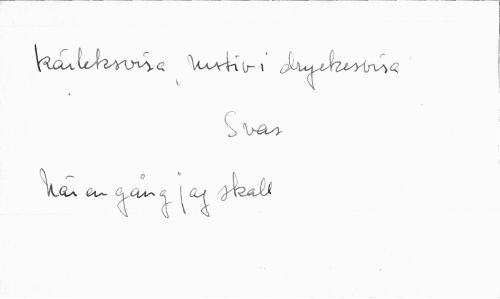 kärleksvisa, motiv i dryckesvisa
Svas
När en gång jag skall